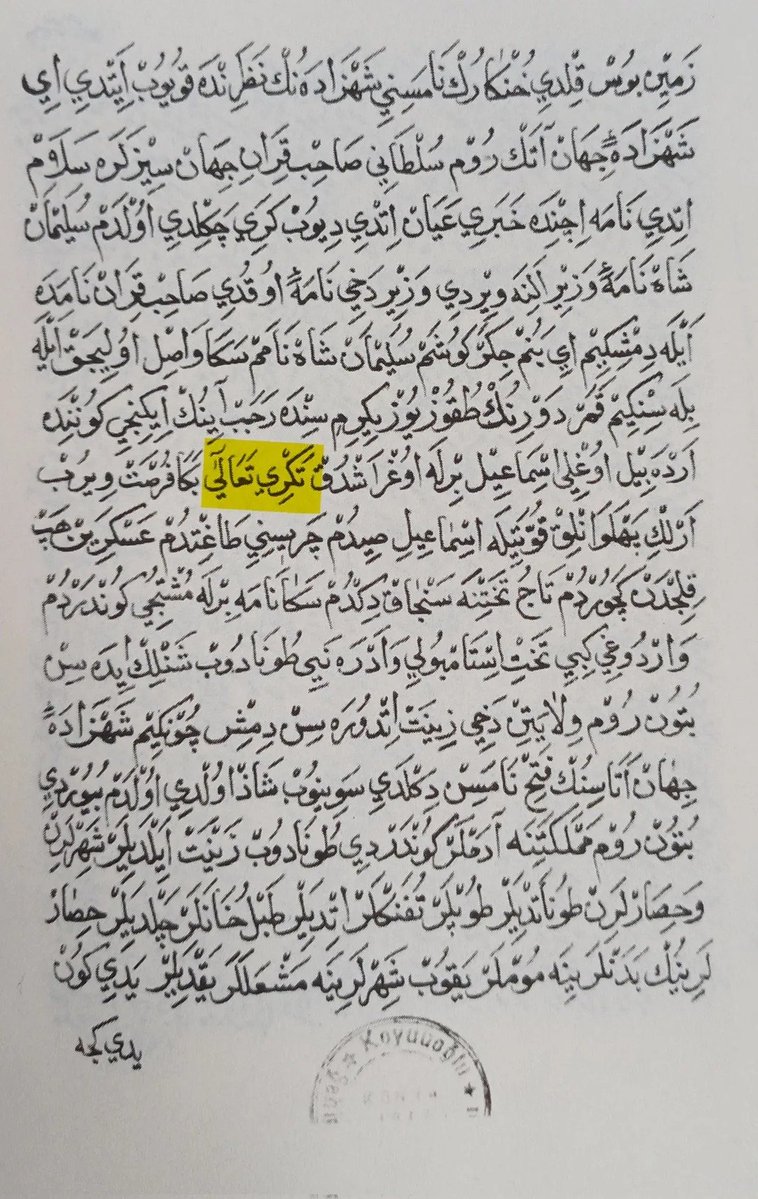 زَمِين بُوسْ قِلْدِي خُنْكَارُكْ نَامَسِنِي شَهْزَادَهنُكْ نَظَرِنْدَه قُويُوبْ اَيِتْدِي اَيْ
شَهْزَادَهءِ جِهَانْ آتَكْ رُومْ سُلْطَانِي صَاحِبْ قِرَانِ جِهَانْ سِيزْلَرَه سَلَامْ
اِتْدِي نَامَه اِچِنْدَه خَبَرِي عَيَانْ اِتْدِي دِيُوبْ كَرِي چَكِلْدِي اُولْدَمْ سُلَيْمَانْ
شَاهْ نَامَهءِ وَزِيرْ اَلِنَه وِيرْدِي وَزِيرْ دَخِي نَامَهءِ اُوقُدِي صَاحِبْ قِرَانْ نَامَدَه
اَيْلَه دِمِشْكِيمْ اَيْ بَنُمْ جِكَرْ كُوشَمْ سُلَيْمَانْ شَاهْ نَامَمْ سَكَا وَاصِلْ اُولِيجَقْ اَيْلَه
بِلَه سِنْكِيمْ قَمَرْ دَوْرِنُكْ طُقُوزْ يُوزْ يِكِرِمِ سِنْدَه رَجَبْ آيِنُكْ اِيكِنْجِي كُونِنْدَه
اَرْدَه بِيلْ اُوغْلِي اِسْمَاعِيلْ بِرْلَه اُوغْرَاشْدُقْ تَكْرِي تَعَالَى بَكَا فُرْصَتْ وِيرُبْ
اَرْلِكْ پَهْلَوَانْلِقْ قُوَّتِيلَه اِسْمَاعِيلِ صِيدُمْ چَرِيسِنِي طَاغِتْدُمْ عَسْكَرِينْ هَپْ
قِلِجْدَنْ كَچُورْدُمْ تَاجُ تَخْتِنَه سَنْجَاقْ دِكْدُمْ سَكَا نَامَه بِرْلَه مُشْتُجِي كُونْدَرْدُمْ
وَارْدُوغِي كِبِي تَخْتِ اِسْتَامْبُولِي وَاَدْرَه نَيِي طُونَادُوبْ شَنْلِكْ اِيدَه سِنْ
بُتُونْ رُومْ وِلَايَتِنْ دَخِي زِينَتْ اِتْدُورَه سِنْ دِمِشْ چُونْكِيمْ شَهْزَادَهءِ
جِهَانْ اَتَاسِنُكْ فَتِحْ نَامَسِنْ دِكْلَدِي سَوِينُوبْ شَاذْ اُولْدِي اُولْدَمْ بُيُورْدِي
بُتُونْ رُومْ مَمْلَكَتِنَه آدَمْلَرْ كُونْدَرْدِي طُونَادُوبْ زَيْنَتْ اَيْلَدِيلَرْ شَهْرلَرِنْ
وَحِصَارْلَرِنْ طُونَاتْدِيلَرْ طُوپْلَرْ تُفَنْكَلَرْ اَتْدِيلَرْ طَبْلُ خَانَلَرْ چَلْدِيلَرْ حِصَارْ
لَرِينُكْ بَدَنْلَرِينَه مُومْلَرْ يَقُوبْ شَهْرلَرِينَه مَشْعَلَلَرْ يَقْدِيلَرْ يَدِي كُونْ
يدي كجه
Koyunoğlu